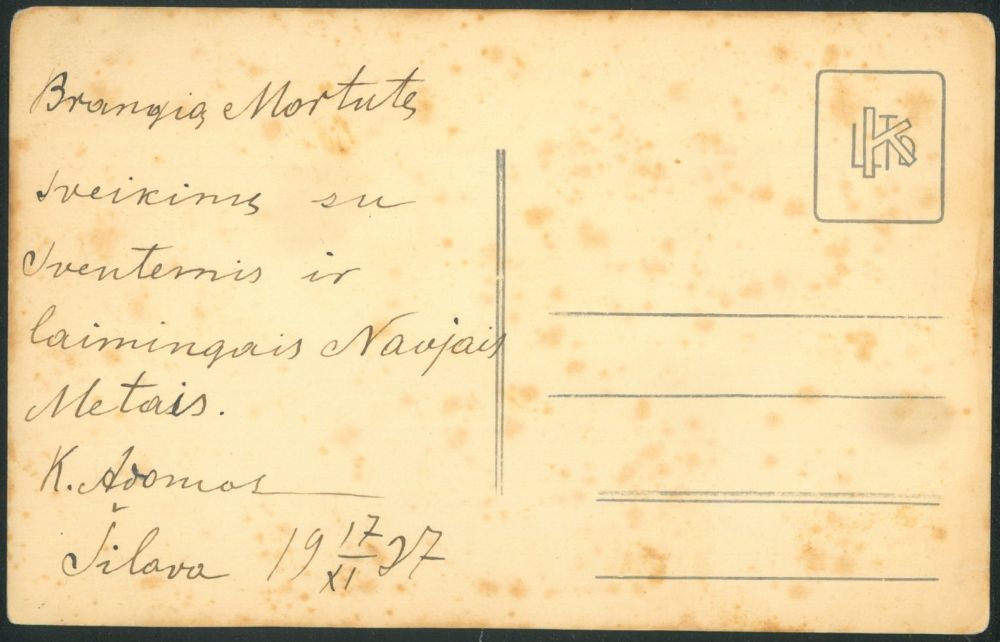 Brangią Mortutę
sveikinų su
Šventemis ir
laimingais Naujais
Metais.
K. Adomas
Šilava 19 17/XI 37